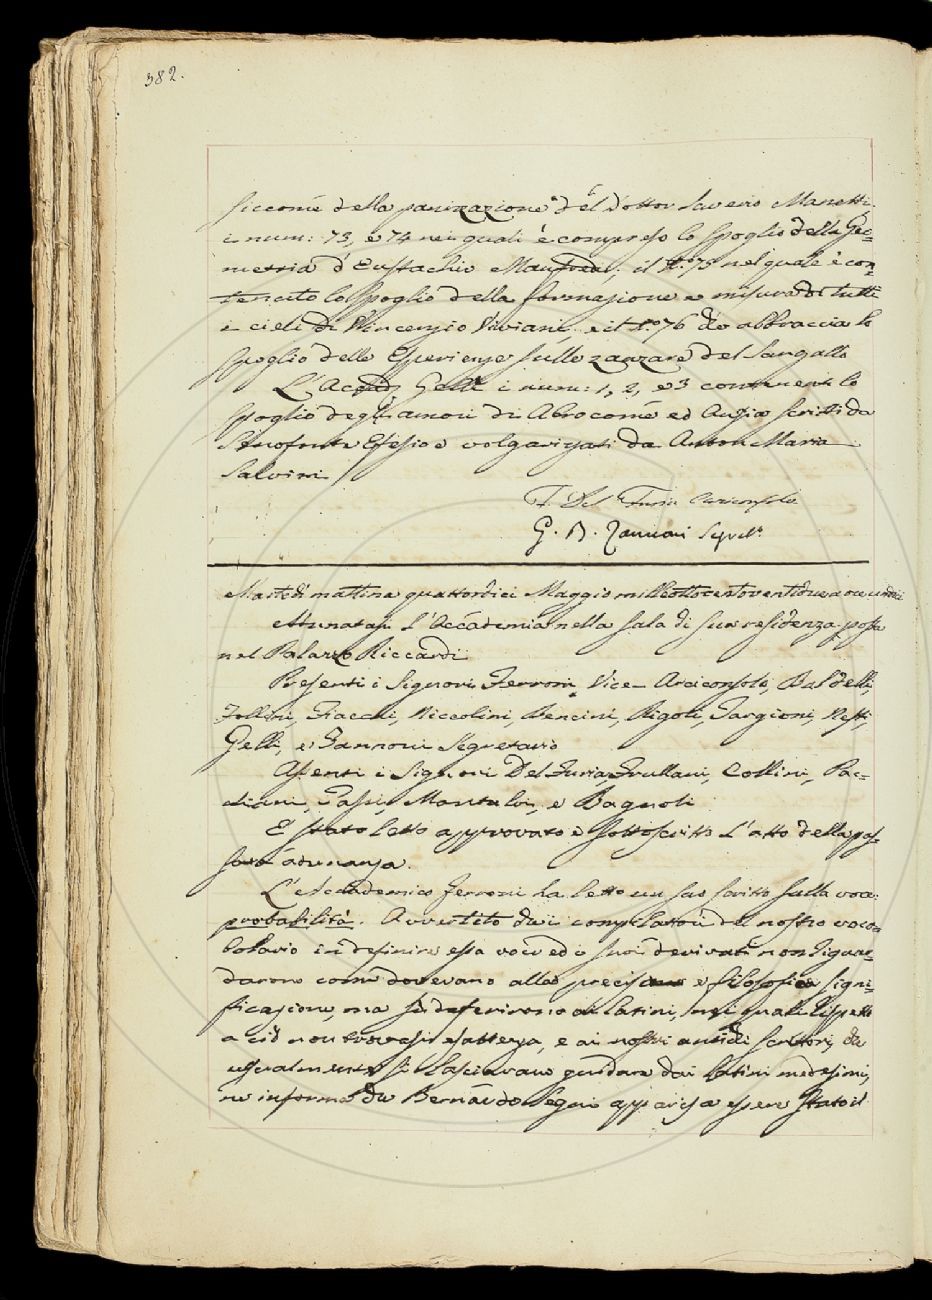 382.
siccome della panizazione del Dottor Saverio Manetti.
i num: 73, e 74 nei quali è compreso lo spoglio della Geo=
metria d'Eustachio Manfredi; il N.° 75 nel quale è con=
tenuto lo spoglio della formazione e misura di tutti
i cieli di Vincenzio Viviani, e il N.° 76 che abbraccia lo
spoglio delle Esperienze sulle zanzare del Sangallo
L'Accad. Gelli i num: 1, 2, e 3 contenenti lo
spoglio degli amori di Abrocome ed Anzia scritti da
Senofonte Efesio e volgarizzati da Anton Maria
Salvini.
F. Del Furia Arciconsolo
G. B. Zannoni Segret.°
Martedì mattina quattordici Maggio milleottocentoventidue a ore undici
Adunatasi l'Accademia nella sala di sua residenza posta
nel Palazzo Riccardi
Presenti i Signori Ferroni Vice-Arciconsolo, Baldelli,
Follini, Fiacchi, Niccolini, Bencini, Rigoli, Targioni, Nesti,
Gelli, e Zannoni Segretario
Assenti i Signori Del Furia, Frullani, Collini, Pac=
chiani, Sarchiani, Montalvi, e Bagnoli
È stato letto approvato e sottoscritto l'atto della pas=
sata adunanza.
L'Accademico Ferroni ha letto un suo scritto sulla voce
probabilità. Avvertito che i compilatori del nostro voca=
bolario in definire essa voce ed i suoi derivati non riguar=
darono come dovevano alla precisa e filosofica signi=
ficazione, ma si deferirono ai latini, nei quali rispetto
a ciò non trovasi esattezza, e ai nostri antichi scrittori, che
usualmente si lasciavano guidare dai latini medesimi,
ne informa che Bernardo Segni apparisce essere stato il